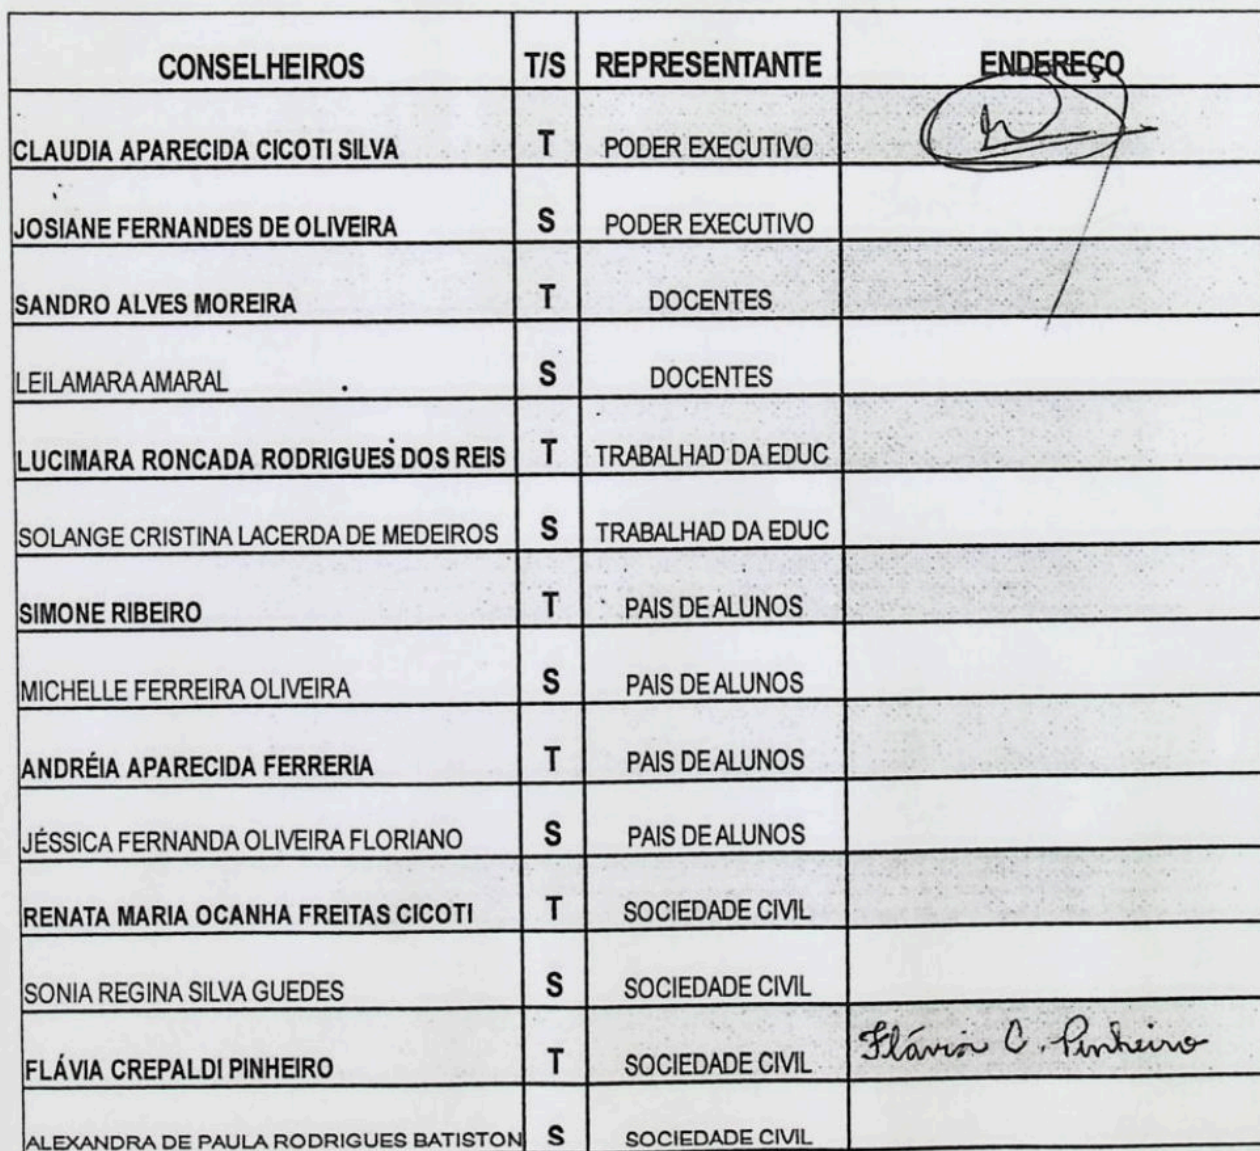 CONSELHEIROS T/S REPRESENTANTE ENDEREÇO
CLAUDIA APARECIDA CICOTI SILVA T PODER EXECUTIVO
JOSIANE FERNANDES DE OLIVEIRA S PODER EXECUTIVO
SANDRO ALVES MOREIRA T DOCENTES
LEILAMARA AMARAL S DOCENTES
LUCIMARA RONCADA RODRIGUES DOS REIS T TRABALHAD DA EDUC
SOLANGE CRISTINA LACERDA DE MEDEIROS S TRABALHAD DA EDUC
SIMONE RIBEIRO T PAIS DE ALUNOS
MICHELLE FERREIRA OLIVEIRA S PAIS DE ALUNOS
ANDRÉIA APARECIDA FERRERIA T PAIS DE ALUNOS
JÉSSICA FERNANDA OLIVEIRA FLORIANO S PAIS DE ALUNOS
RENATA MARIA OCANHA FREITAS CICOTI T SOCIEDADE CIVIL
SONIA REGINA SILVA GUEDES S SOCIEDADE CIVIL
FLÁVIA CREPALDI PINHEIRO T SOCIEDADE CIVIL Flávia C. Pinheiro
ALEXANDRA DE PAULA RODRIGUES BATISTON S SOCIEDADE CIVIL